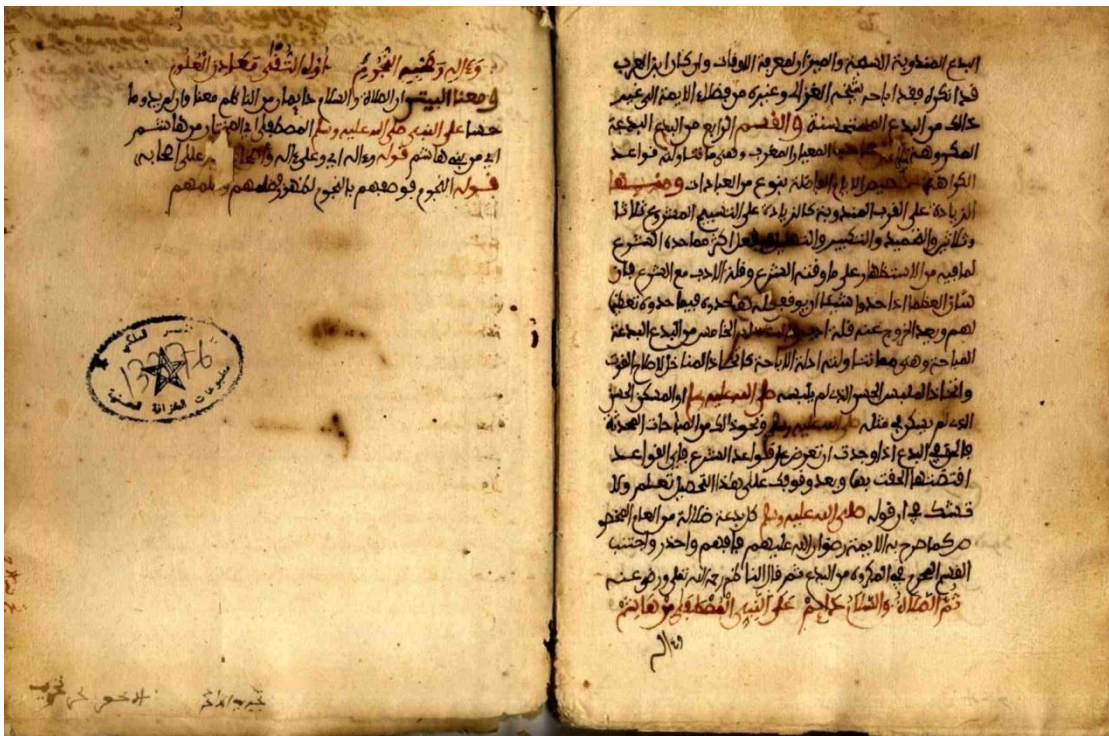 البدع المندوبة الاسهة والميزان لمعرفة الاوقات وان كان ابن العرب
قد انكره فقد اباحه شيخه الغزالي وغيره من فضلاء الايمة الى غير
ذالك من البدع المستحسنة والقسم الرابع من البدع البدعة
المكروهة المعيار المغرب وهي ما تناولته قواعد
الكراهة الايام الفاضلة بنوع من العبادات ومنها
الزيادة على القرب المندوبة كالزيادة على التسبيح المشروع ثلاثا
وثلاثين والتحميد والتكبير والتهليل اكثر مما حده الشرع
لما فيه من الاستظهار على ما وقته الشرع وقلة الادب مع الشرع فان
شان العظما اذا حدوا شيئا ان يوقف عند ما حدوه فيما حدوه تعظيما
لهم ويعد الخروج عنه قلة ادب والقسم الخامس من البدع البدعة
المباحة وهي ما تناولته ادلة الاباحة كاتخاذ المناخل لاصلاح القوت
واتخاذ الملبس الحسن الذي لم يلبسه صلى الله عليه وسلم او المسكن الحسن
الذي لم يسكن في مثله صلى الله عليه وسلم ونحو ذالك من المباحات المحدثة
فالحق في البدع اذا وجدت ان تعرض على قواعد الشرع فاي القواعد
اقتضتها الحقت بها وبعد وقوفك على هذا التحصيل تعلم ولا
تشك في ان قوله صلى الله عليه وسلم كل بدعة ضلالة من العام المخصو
ص كما صرح به الايمة رضوان الله عليهم فافهم واحذر واجتنب
القسم المحرم والمكروه من البدع ثم قال الناظم رحمه الله تعلى ورضي عنه
ثُمَّ الصَّلاةُ والسَّلامُ عَلَى النَّبِيِّ الْمُصْطَفَى مِنْ هَاشِمْ
وءاله
وَءَاله وَصَحْبِه النُّجُومْ أولِ التُّقَى مَعَادِنِ الْعُلُومْ
ومعنا البيتين ان الصلاة والسلام دايمان من الناظم معنا وان لم يدوما
حسا على النبي صلى الله عليه وسلم المصطفى اي المختار من هاشم
اي من بني هاشم قوله وءاله اي وعلى ءاله على اصحابه
قوله النجوم فوصفهم بالنجوم لظهور فضلهم وعلمهم
الملكي
13217-6
مطبوعات الخزانة الحسنية